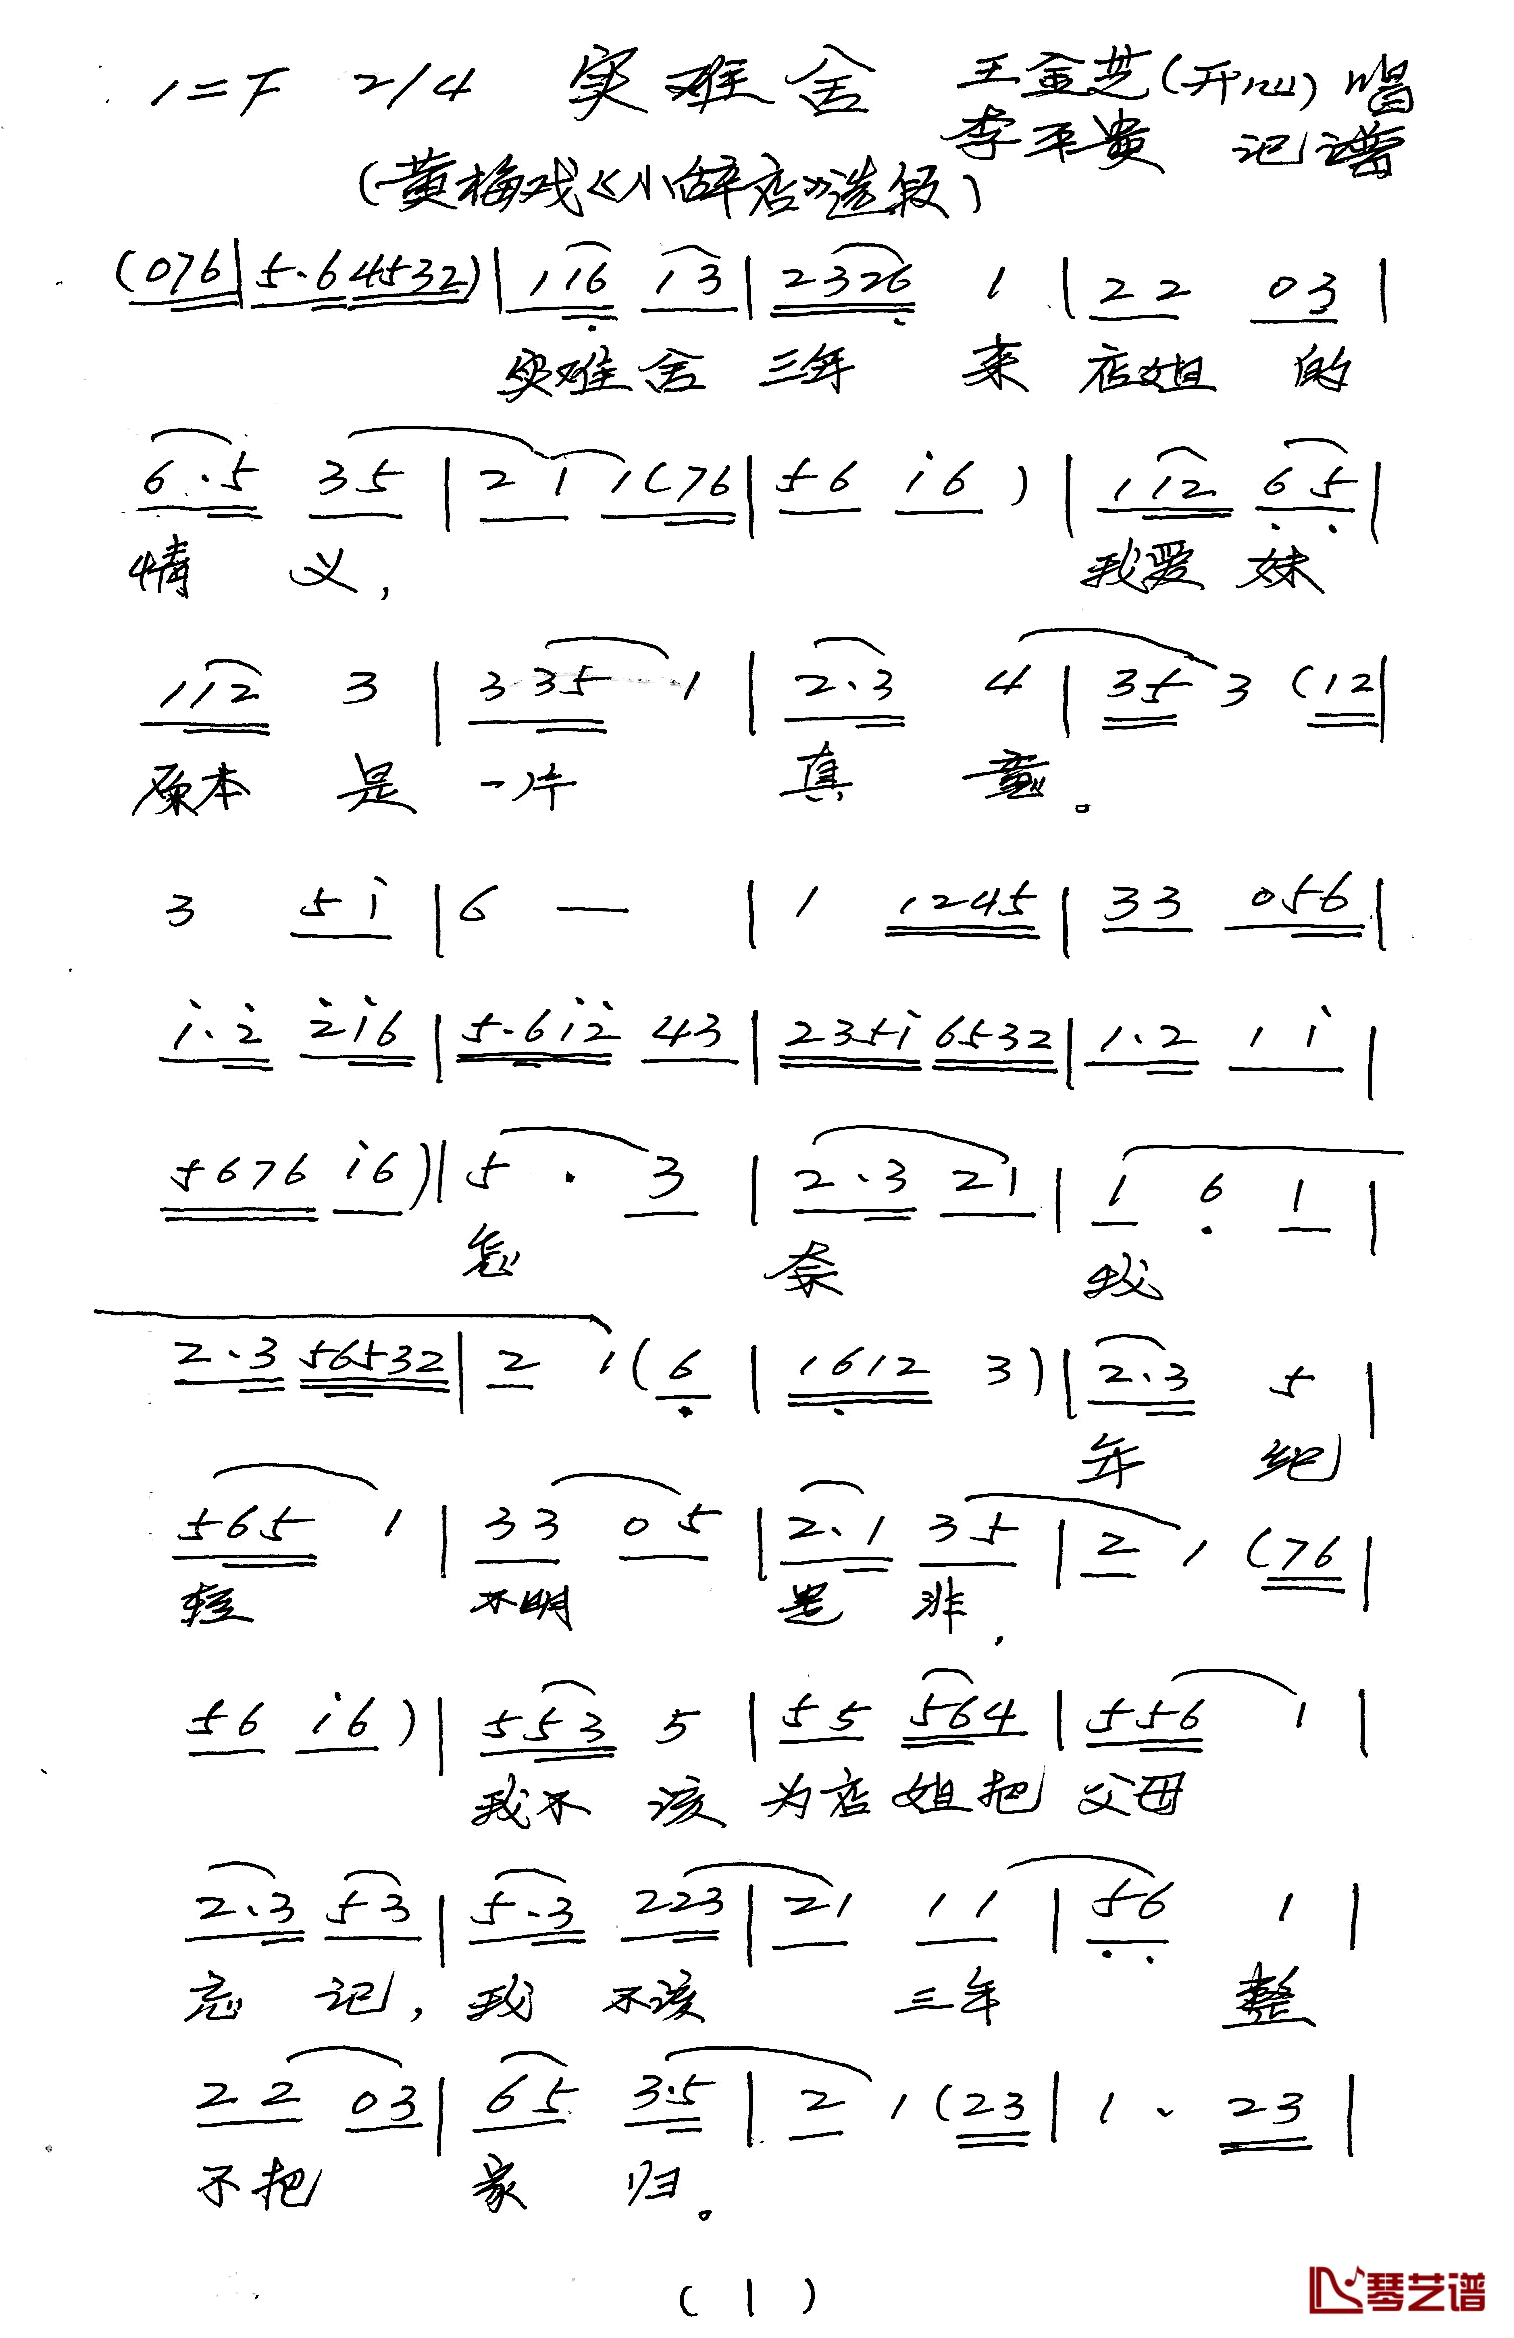 1=F 2/4 实难舍 王金芝(开心)唱
李平贵 记谱
(黄梅戏《小辞店》选段)
(076|5.64532)|116 13|2326 1|22 03|
实难舍 三年 来 店姐 的
6.5 35|21 1(76|56 i6)|112 65|
情 义, 我爱 妹
112 3|335 1|2.3 4|35 3(12|
原本 是 一片 真 意。
3 5i|6 —|1 1245|33 056|
i.2̇ 2̇i6|5.6i2̇ 43|235i 6532|1.2 1i|
5676 i6)|5. 3|2.3 21|1 6 1|
怎 奈 我
2.3 56532|2 1(6|1612 3)|2.3 5|
年 纪
565 1|33 05|2.1 35|2 1(76|
轻 不明 是 非,
56 i6)|553 5|55 564|556 1|
我不 该 为店 姐把 父母
2.3 53|5.3 223|21 11|56 1|
忘 记, 我 不该 三年 整
22 03|65 3.5|2 1(23|1. 23|
不把 家 归。
(1)
琴艺谱